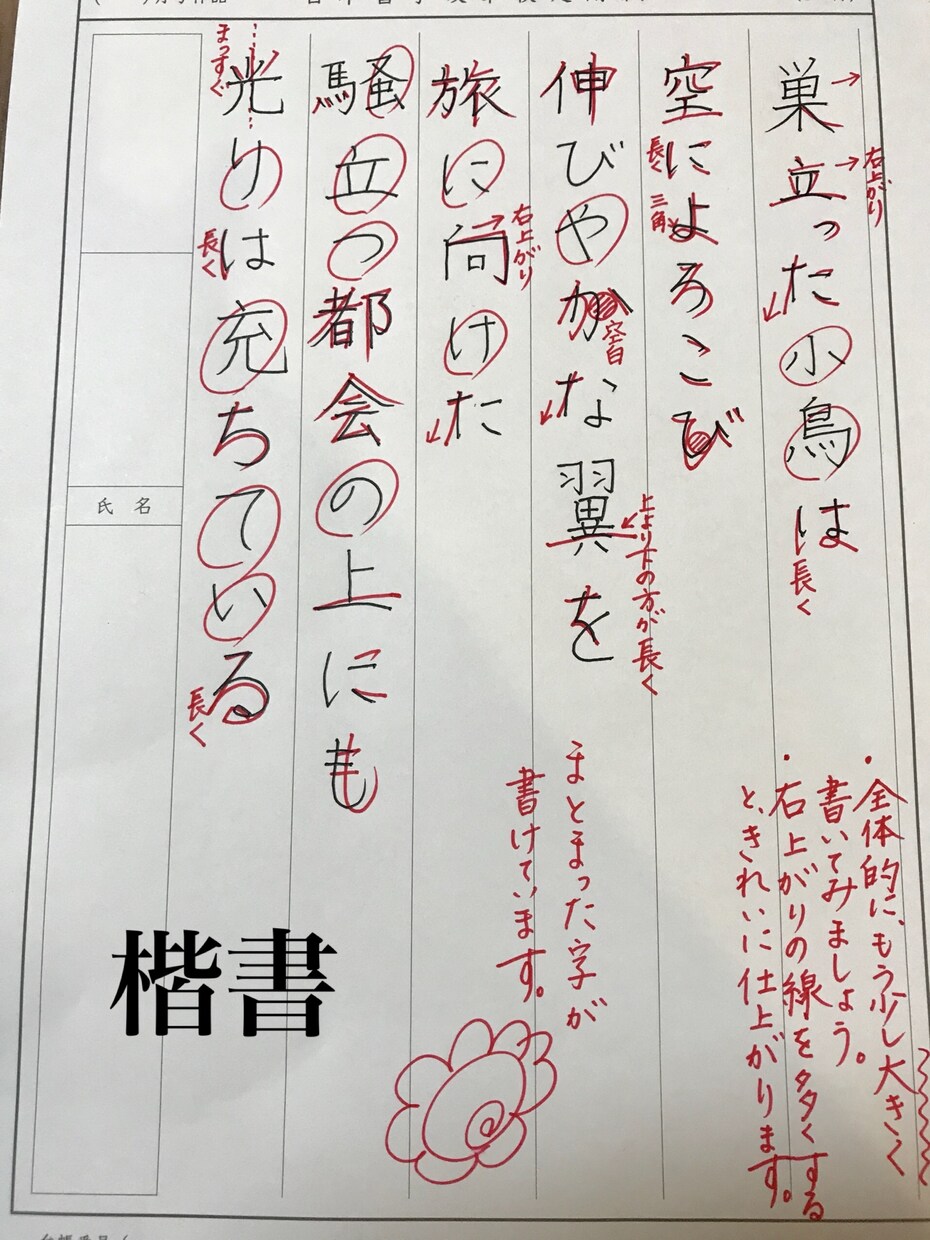 巣立った小鳥は
右上がり
長く
空によろこび
長く
三角
伸びやかな翼を
空白
上より下の方が長く
旅に向けた
右上がり
騒立つ都会の上にも
光りは充ちている
まっすぐ
長く
長く
氏名
・全体的に、もう少し大きく
書いてみましょう。
・右上がりの線を多くする
と、きれいに仕上がります。
まとまった字が
書けています。
楷書